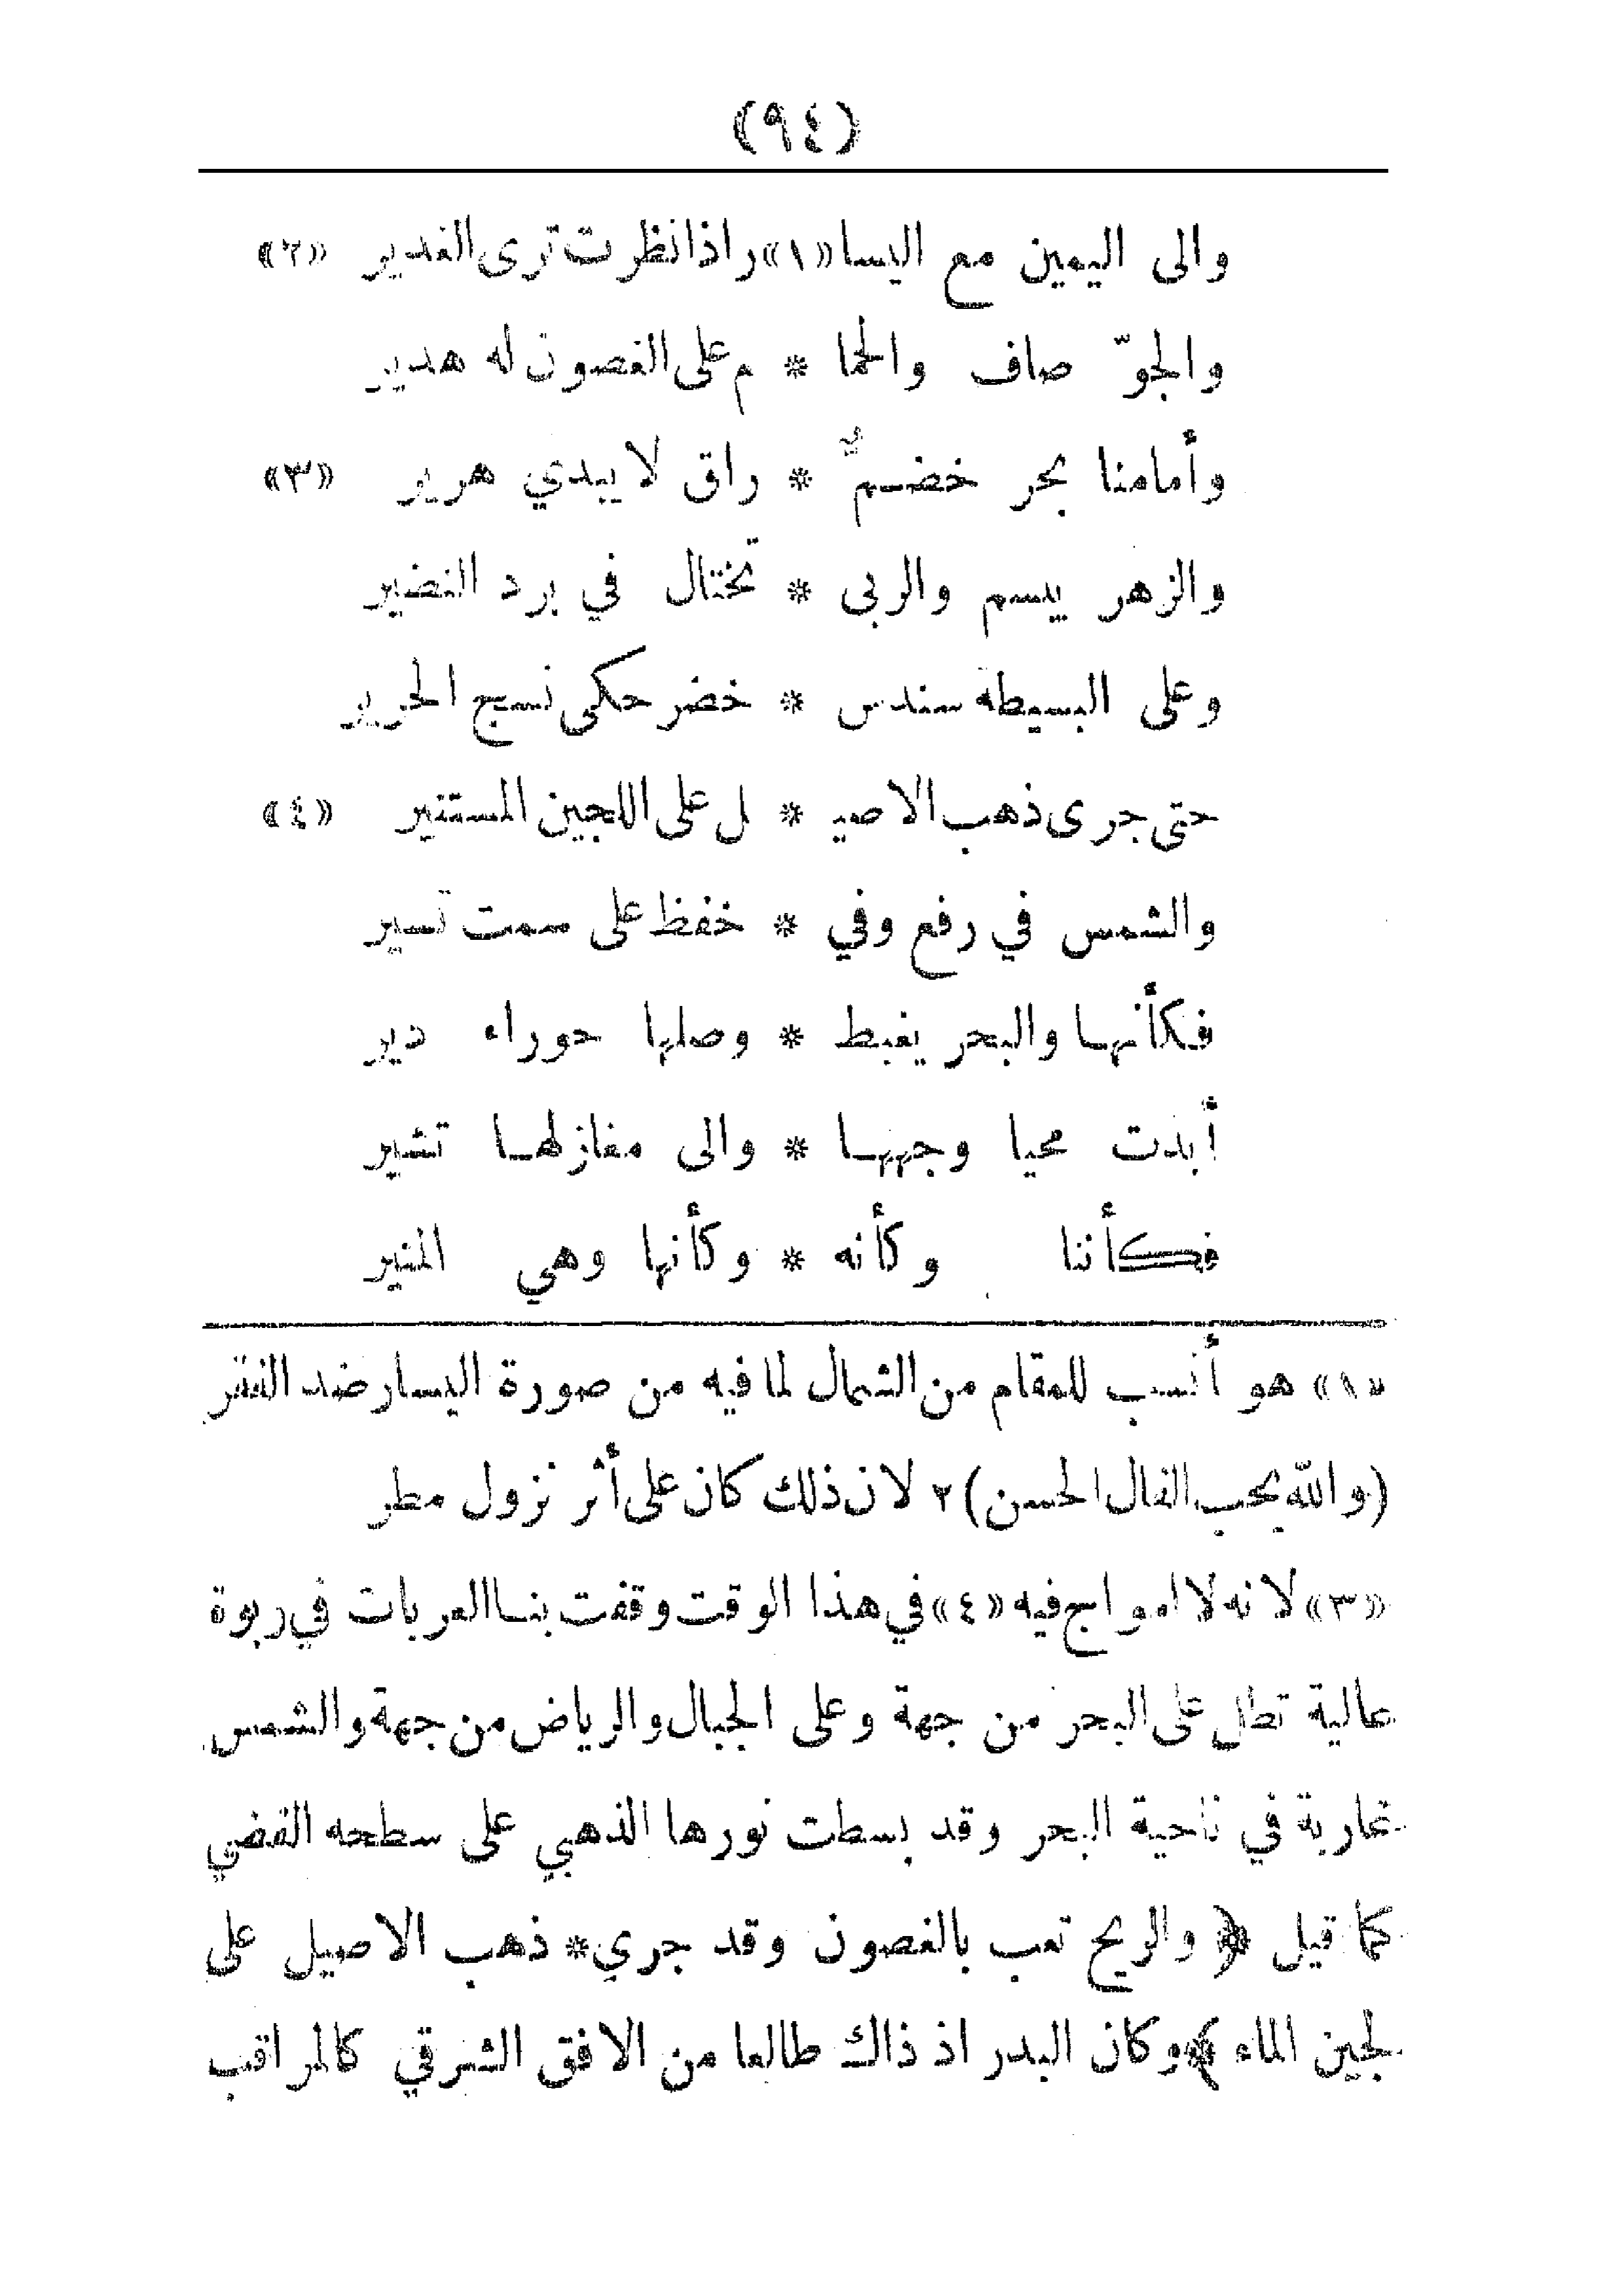 (٩٤)
والى اليمين مع اليسا«١»راذا نظرت ترى الغدير «٢»
والجوّ صاف والحما * م على الغصون له هدير
وأمامنا بحر خضـمٌّ * راق لا يبدي هرير «٣»
والزهر يبسم والربى * تختال في برد النضير
وعلى البسيطة سندس * خضر حكى نسيج الحرير
حتى جرى ذهب الاصيـ * ل على اللجين المستنير «٤»
والشمس في رفع وفي * خفظ على سمت تسير
فكأنهـا والبحر يغبط * وصلها حوراء دير
أبدت محيا وجههـا * والى مغازلهـا تشير
فكأننا وكأنه * وكأنها وهي المنير
«١» هو أنسب للمقام من الشمال لما فيه من صورة اليسار ضد الفقر
(والله يحب الفال الحسن) ٢ لان ذلك كان على أثر نزول مطر
«٣» لانه لا امواج فيه «٤» في هذا الوقت وقفت بنـا العربات في ربوة
عالية تطل على البحر من جهة وعلى الجبال والرياض من جهة والشمس
غاربة في ناحية البحر وقد بسطت نورها الذهبي على سطحه الفضي
كما قيل ﴿ والريح تعب بالغصون وقد جري* ذهب الاصيل على
لجين الماء ﴾ وكان البدر اذ ذاك طالعا من الافق الشرقي كالمراقب